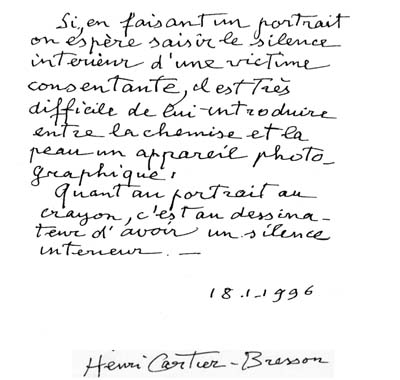 Si, en faisant un portrait
on espère saisir le silence
intérieur d'une victime
consentante, il est très
difficile de lui introduire
entre la chemise et la
peau un appareil photo-
graphique;
Quant au portrait au
crayon, c'est au dessina-
teur d'avoir un silence
interieur. —
18.1.1996
Henri Cartier-Bresson